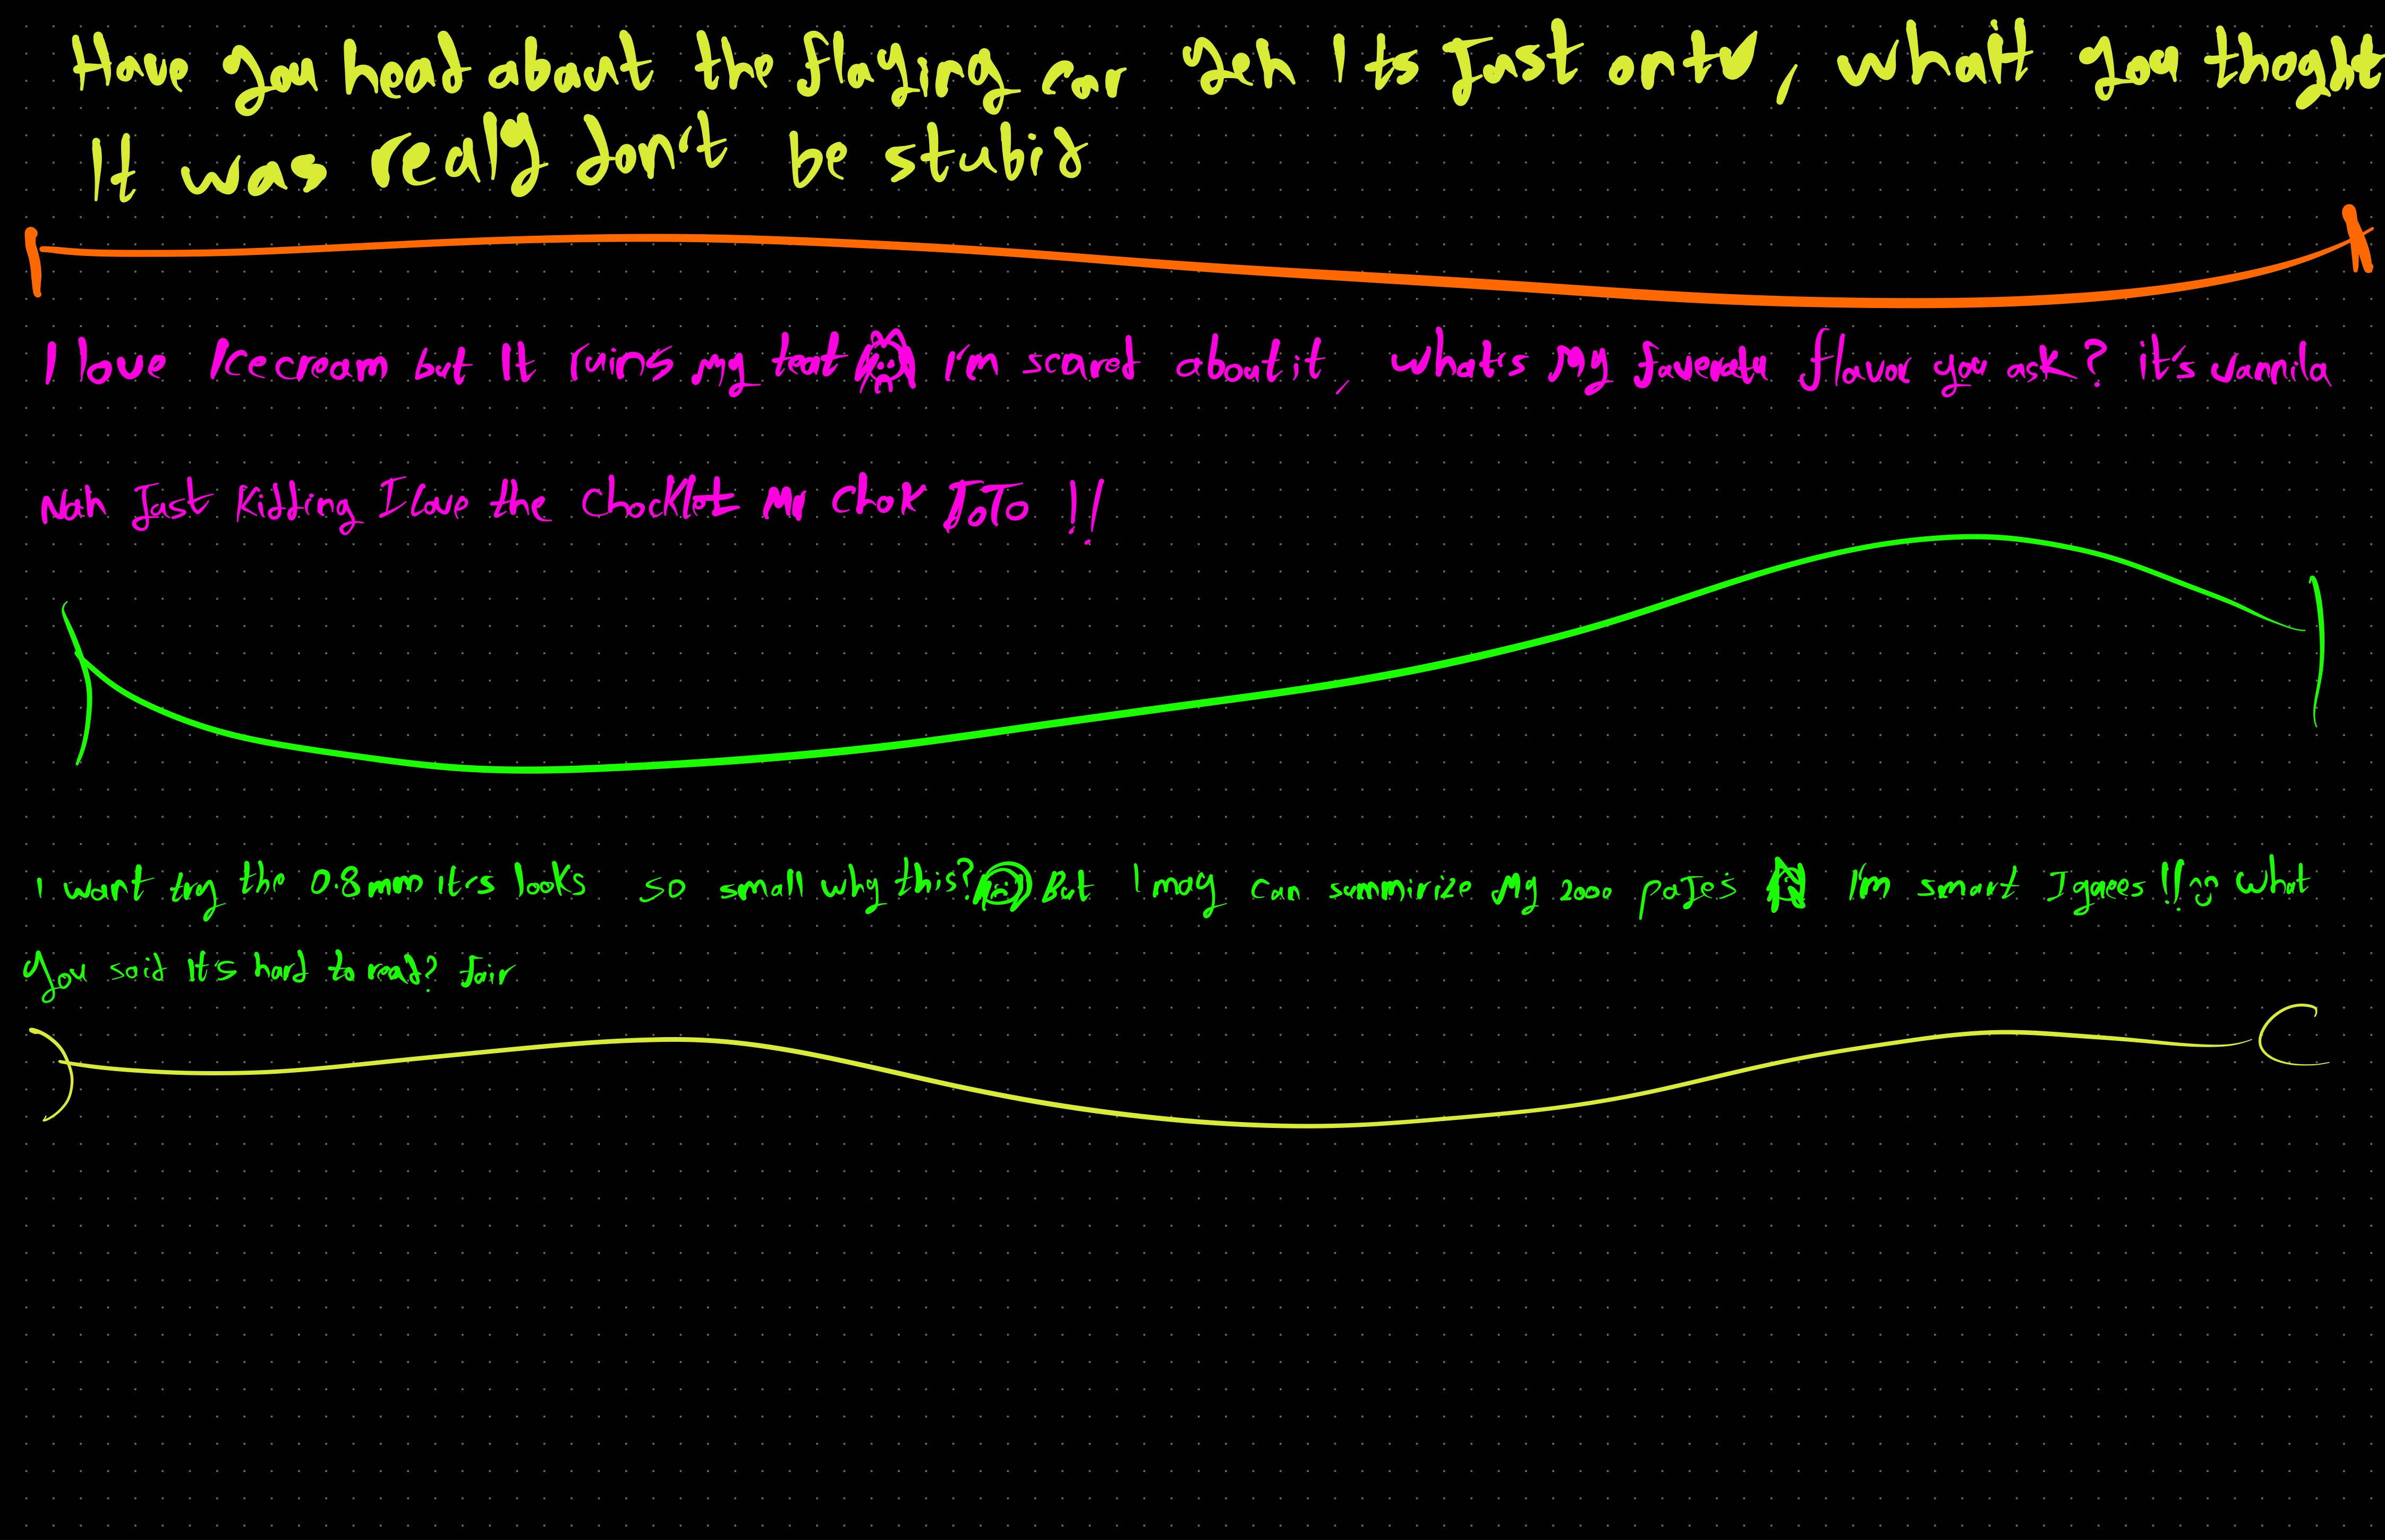 Have you head about the flaying car yeh Its Just ontv, whait you thoght
It was really don't be stubid
I love Icecream but It ruins my teat I'm scared about it, what's My faverate flavor you ask? it's vannila
Nah Just Kidding I love the Chocklet Mr Chok JoTo !!
I want try the 0.8mm it's looks so small why this? But I may can summirize My 2000 pajes I'm smart I gaees !! what
you said It's hard to read? fair